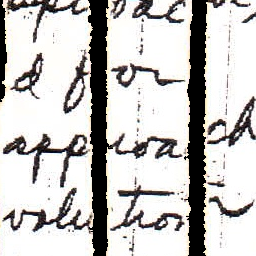 d for
approach
volution